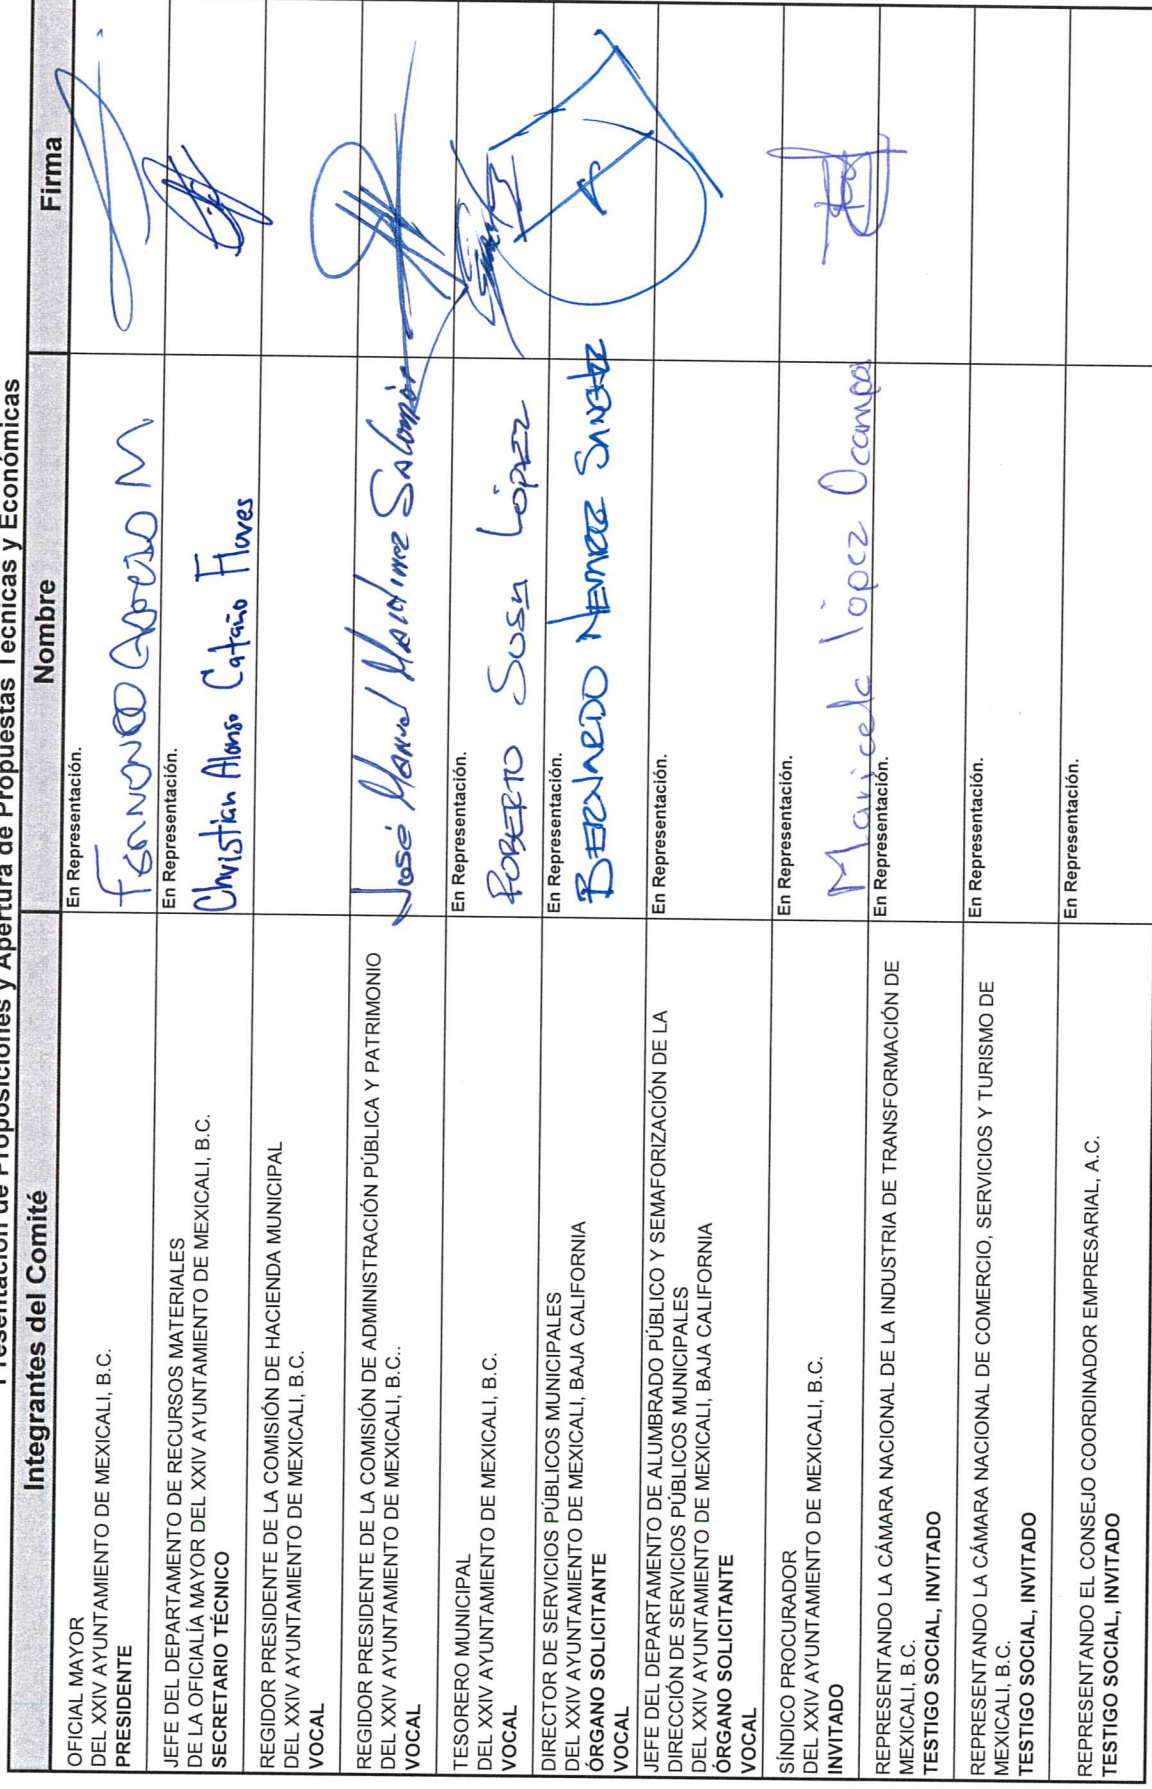 Presentación de Proposiciones y Apertura de Propuestas Técnicas y Económicas
Integrantes del Comité
Nombre
Firma
OFICIAL MAYOR
DEL XXIV AYUNTAMIENTO DE MEXICALI, B.C.
PRESIDENTE
En Representación.
JEFE DEL DEPARTAMENTO DE RECURSOS MATERIALES
DE LA OFICIALÍA MAYOR DEL XXIV AYUNTAMIENTO DE MEXICALI, B.C.
SECRETARIO TÉCNICO
En Representación.
Christian Alonso Cataño Flores
REGIDOR PRESIDENTE DE LA COMISIÓN DE HACIENDA MUNICIPAL
DEL XXIV AYUNTAMIENTO DE MEXICALI, B.C.
VOCAL
REGIDOR PRESIDENTE DE LA COMISIÓN DE ADMINISTRACIÓN PÚBLICA Y PATRIMONIO
DEL XXIV AYUNTAMIENTO DE MEXICALI, B.C..
VOCAL
José Manuel Martinez Salomón
TESORERO MUNICIPAL
DEL XXIV AYUNTAMIENTO DE MEXICALI, B.C.
VOCAL
En Representación.
ROBERTO SOSA LÓPEZ
DIRECTOR DE SERVICIOS PÚBLICOS MUNICIPALES
DEL XXIV AYUNTAMIENTO DE MEXICALI, BAJA CALIFORNIA
ÓRGANO SOLICITANTE
VOCAL
En Representación.
BERNARDO NEVAREZ SANCHEZ
JEFE DEL DEPARTAMENTO DE ALUMBRADO PÚBLICO Y SEMAFORIZACIÓN DE LA
DIRECCIÓN DE SERVICIOS PÚBLICOS MUNICIPALES
DEL XXIV AYUNTAMIENTO DE MEXICALI, BAJA CALIFORNIA
ÓRGANO SOLICITANTE
VOCAL
En Representación.
SÍNDICO PROCURADOR
DEL XXIV AYUNTAMIENTO DE MEXICALI, B.C.
INVITADO
En Representación.
Maricela López Ocampo
REPRESENTANDO LA CÁMARA NACIONAL DE LA INDUSTRIA DE TRANSFORMACIÓN DE
MEXICALI, B.C.
TESTIGO SOCIAL, INVITADO
En Representación.
REPRESENTANDO LA CÁMARA NACIONAL DE COMERCIO, SERVICIOS Y TURISMO DE
MEXICALI, B.C.
TESTIGO SOCIAL, INVITADO
En Representación.
REPRESENTANDO EL CONSEJO COORDINADOR EMPRESARIAL, A.C.
TESTIGO SOCIAL, INVITADO
En Representación.